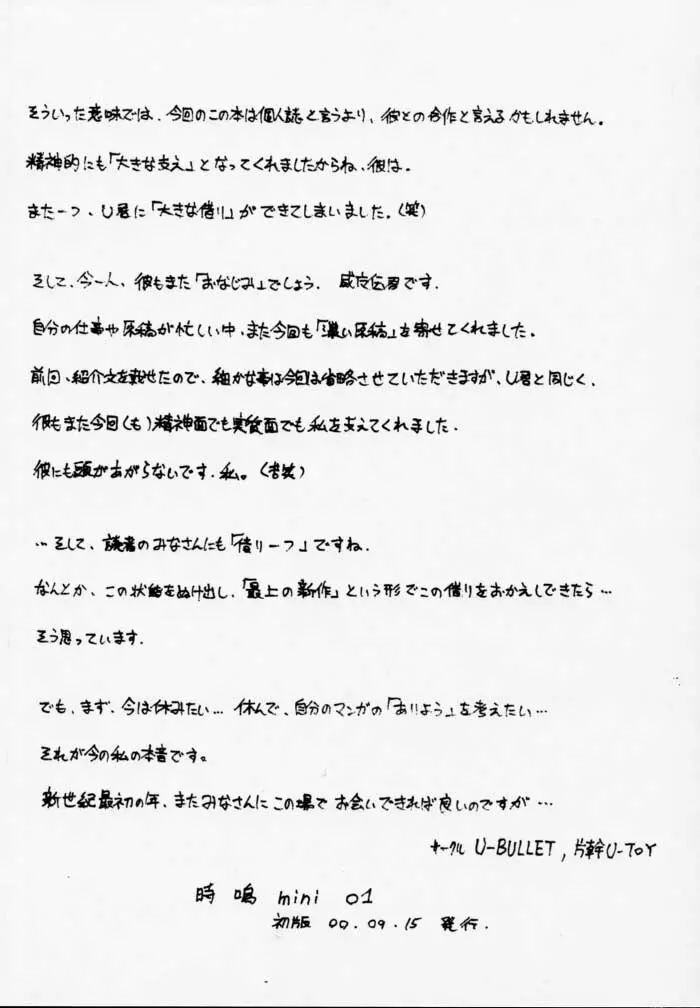 そういった意味では、今回のこの本は個人誌と言うより、彼との合作と言えるかもしれません。
精神的にも「大きな支え」となってくれましたからね、彼は。
また一つ、U君に「大きな借り」ができてしまいました。(笑)
そして、今一人、彼もまた「おなじみ」でしょう。君です。
自分の仕事や原稿が忙しい中、また今回も「濃い原稿」を寄せてくれました。
前回、紹介文を載せたので、細かな事は今回は省略させていただきますが、U君と同じく、
彼もまた今回(も)精神面でも実質面でも私を支えてくれました。
彼にも頭があがらないです、私。(苦笑)
…そして、読者のみなさんにも「借り一つ」ですね。
なんとか、この状態をぬけ出し、「最上の新作」という形でこの借りをおかえしできたら…
そう思っています。
でも、まず、今は休みたい… 休んで、自分のマンガの「ありよう」を考えたい…
それが今の私の本音です。
新世紀最初の年、またみなさんにこの場でお会いできれば良いのですが…
サークル U-BULLET, 片幹U-TOY
時鳴 mini 01
初版 00.09.15 発行.